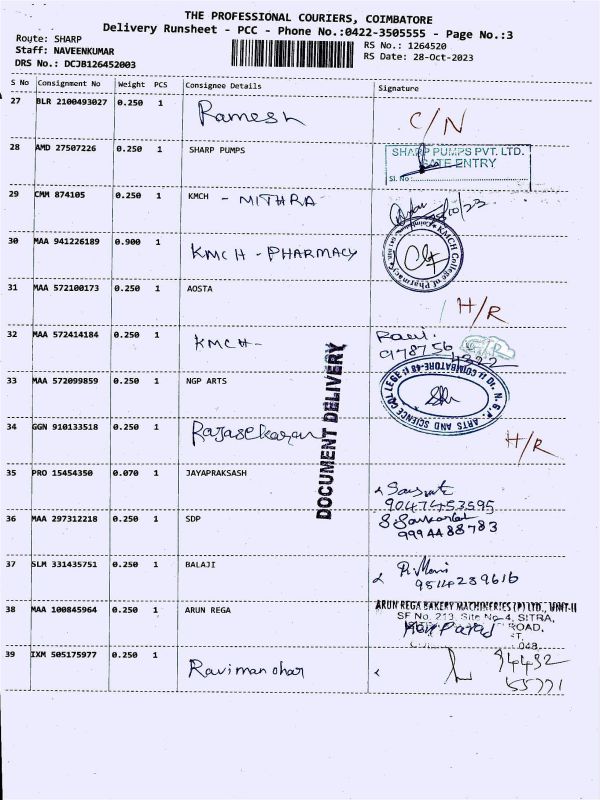 THE PROFESSIONAL COURIERS, COIMBATORE
Delivery Runsheet - PCC - Phone No.:0422-3505555 - Page No.:3
Route: SHARP
Staff: NAVEENKUMAR
DRS No.: DCJB126452003
RS No.: 1264520
RS Date: 28-Oct-2023
S No Consignment No Weight PCS Consignee Details Signature
27 BLR 2100493027 0.250 1 Ramesh C/N
28 AMD 27507226 0.250 1 SHARP PUMPS
SHARP PUMPS PVT. LTD.
GATE ENTRY
Sl. No:
29 CMM 874105 0.250 1 KMCH - MITHRA
30 MAA 941226189 0.900 1 KMCH - PHARMACY
KMCH College of Pharmacy
31 MAA 572100173 0.250 1 AOSTA H/R
32 MAA 572414184 0.250 1 KMCH-
33 MAA 572099859 0.250 1 NGP ARTS
Dr. N.G.P. ARTS AND SCIENCE COLLEGE
COIMBATORE-48
34 GGN 910133518 0.250 1 Rajasekaran H/R
35 PRO 15454350 0.070 1 JAYAPRAKSASH
9047453595
36 MAA 297312218 0.250 1 SDP
9994488783
37 SLM 331435751 0.250 1 BALAJI
P. Mani
9514239616
38 MAA 100845964 0.250 1 ARUN REGA
ARUN REGA BAKERY MACHINERIES (P) LTD., UNIT-II
SF No. 213, Site No-4, SITRA,
ROAD,
39 IXM 505175977 0.250 1 Ravimanohar
DOCUMENT DELIVERY